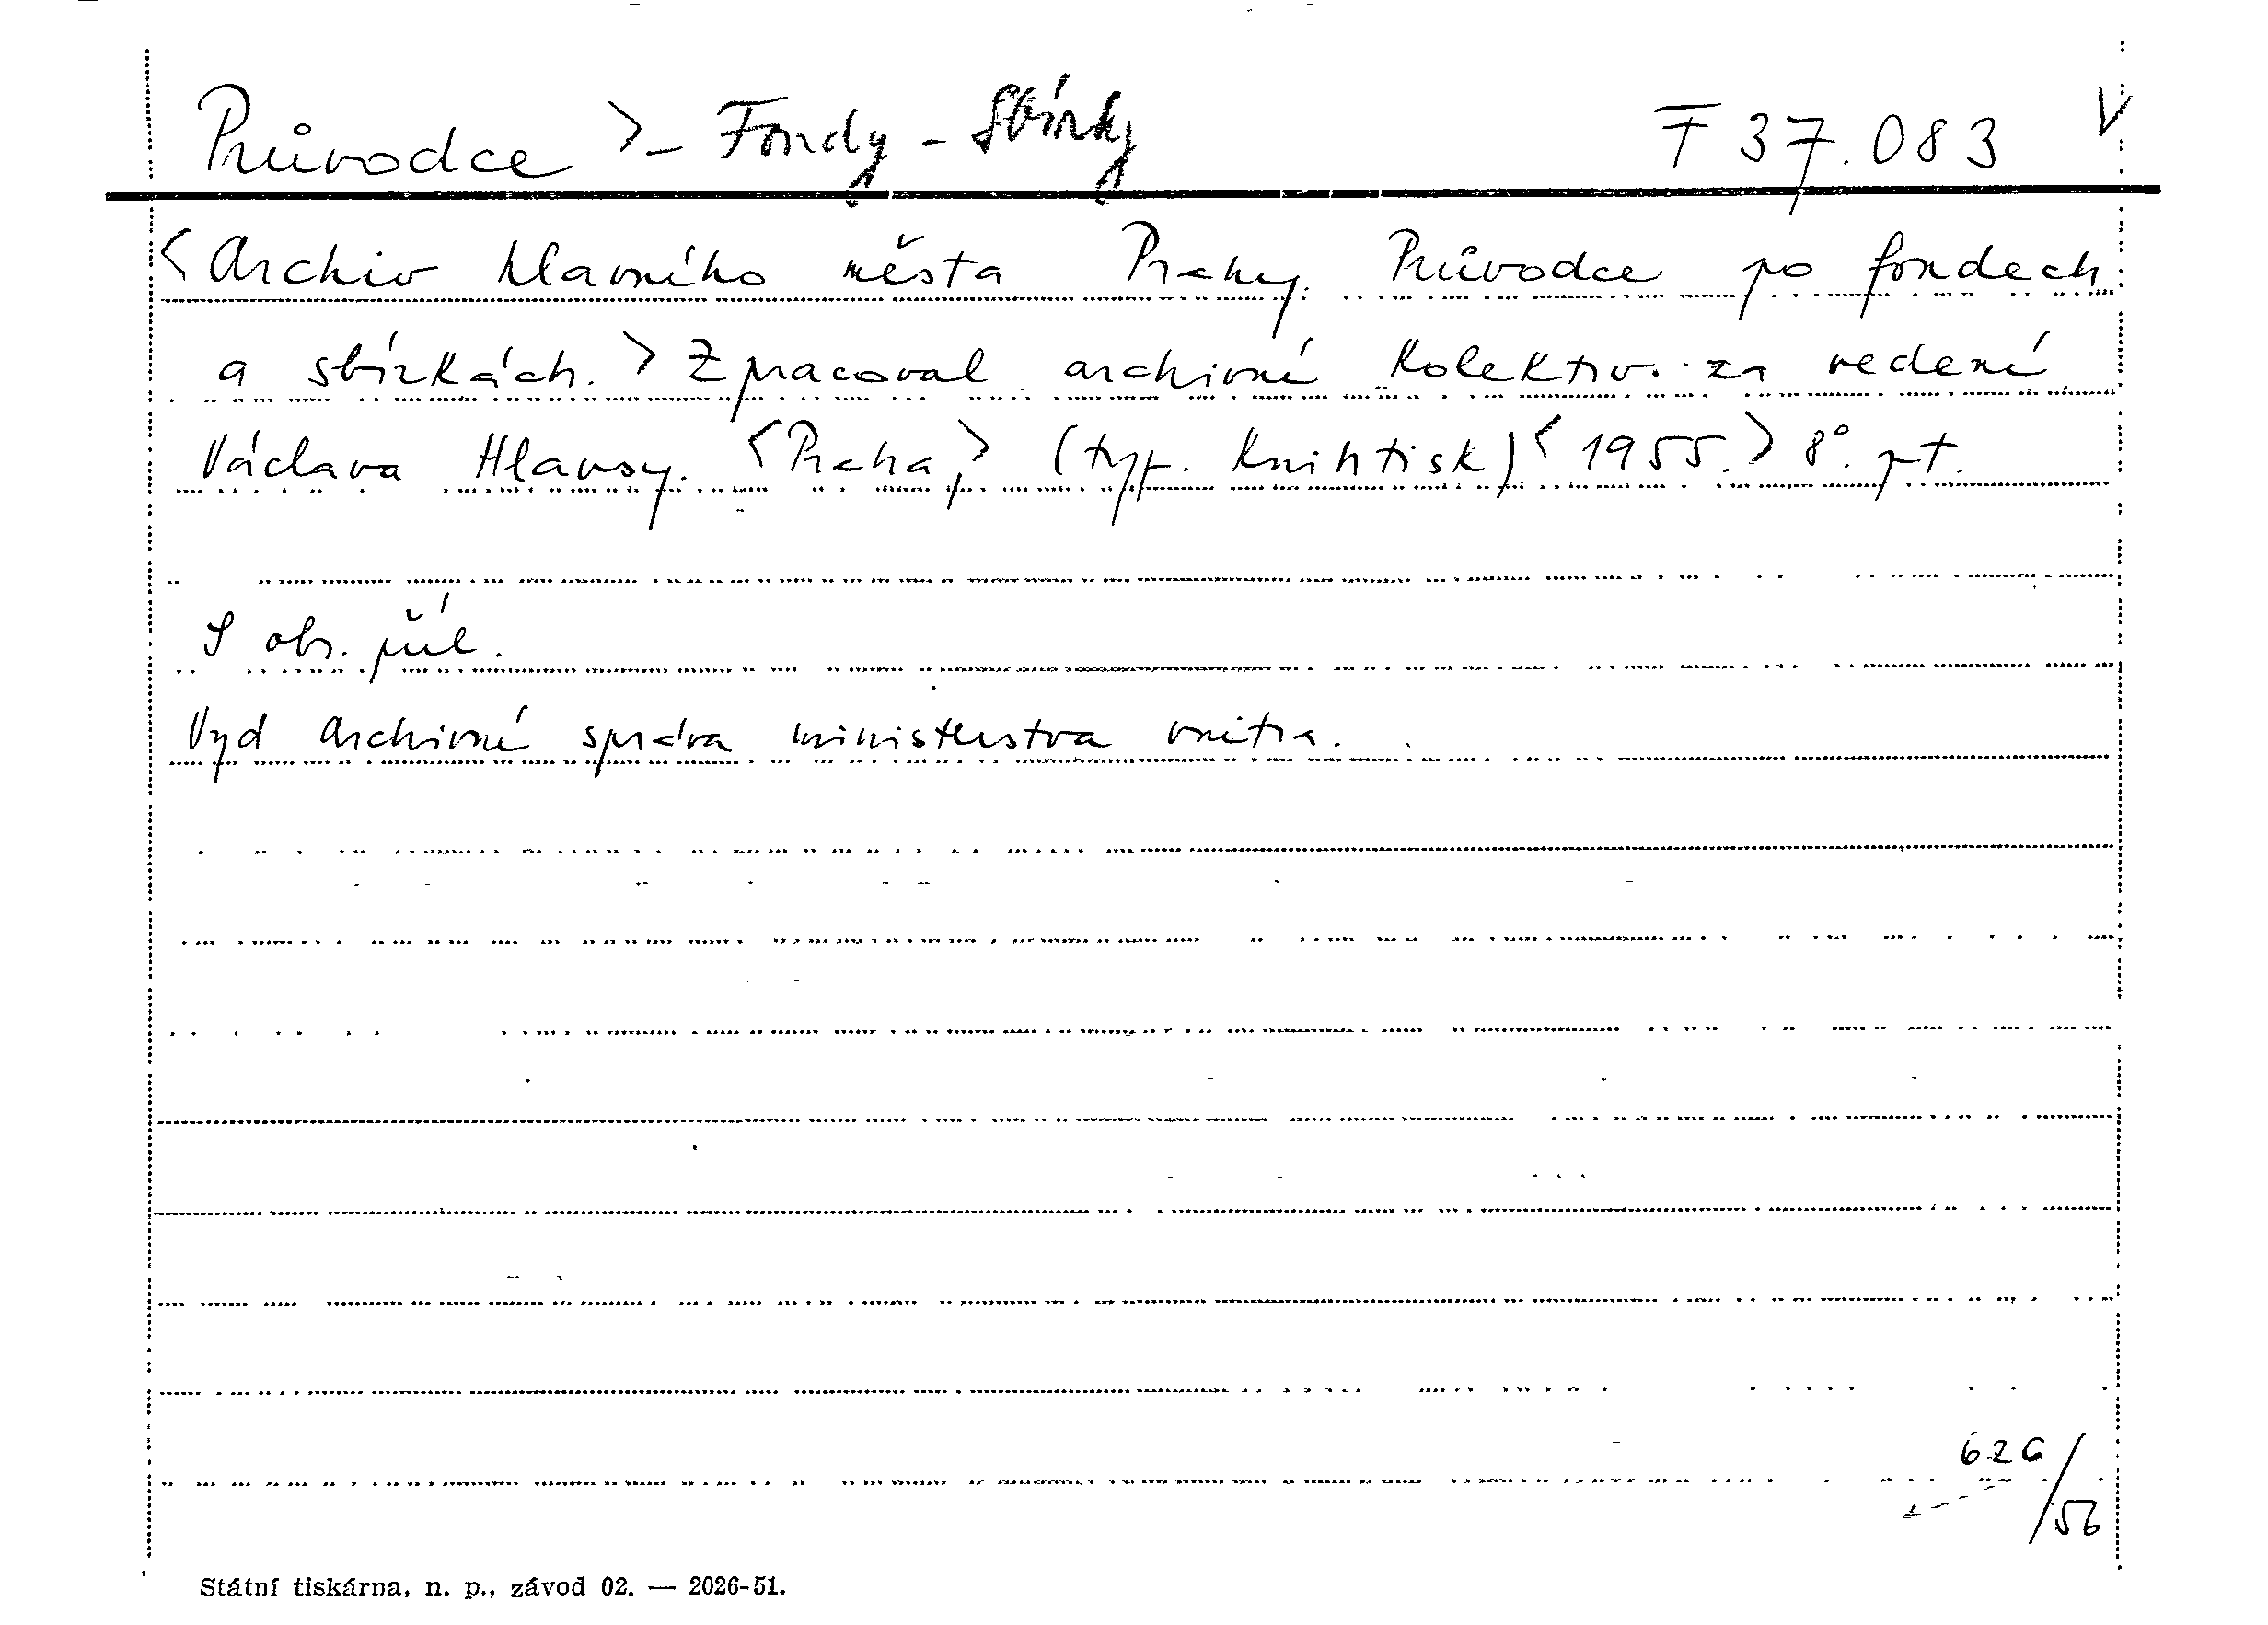 Průvodce >- Fondy - Sbírky F 37.083 V
<Archiv hlavního města Prahy. Průvodce po fondech
a sbírkách.> Zpracoval archivní kolektiv za vedení
Václava Hlavsy. <Praha,> (typ. Knihtisk) <1955.> 8°. pt.
S obr. příl.
Vyd Archivní správa ministerstva vnitra.
626/56
Státní tiskárna, n. p., závod 02. — 2026-51.